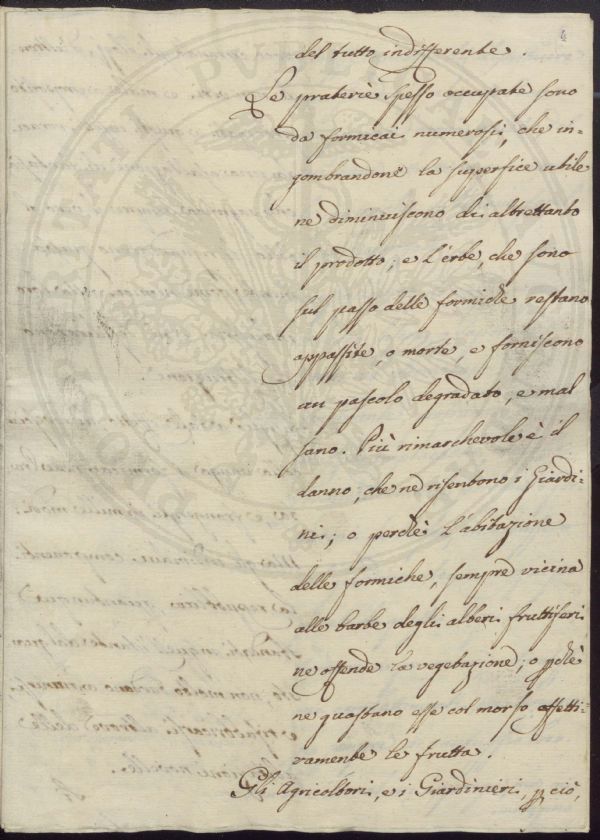 del tutto indifferente.
Le praterie spesso occupate sono
da formicai numerosi, che in-
gombrandone la superfice utile
ne diminuiscono di altrettanto
il prodotto; e l'erbe, che sono
sul passo delle formiche restano
appassite, o morte, e forniscono
un pascolo degradato, e mal
sano. Più rimarchevole è il
danno, che ne risentono i Giardi-
ni; o perchè l'abitazione
delle formiche, sempre vicina
alle barbe degli alberi fruttiferi
ne offende la vegetazione; o pchè
ne guastano esse col morso effetti-
vamente le frutta.
Gli Agricoltori, e i Giardinieri, p ciò,